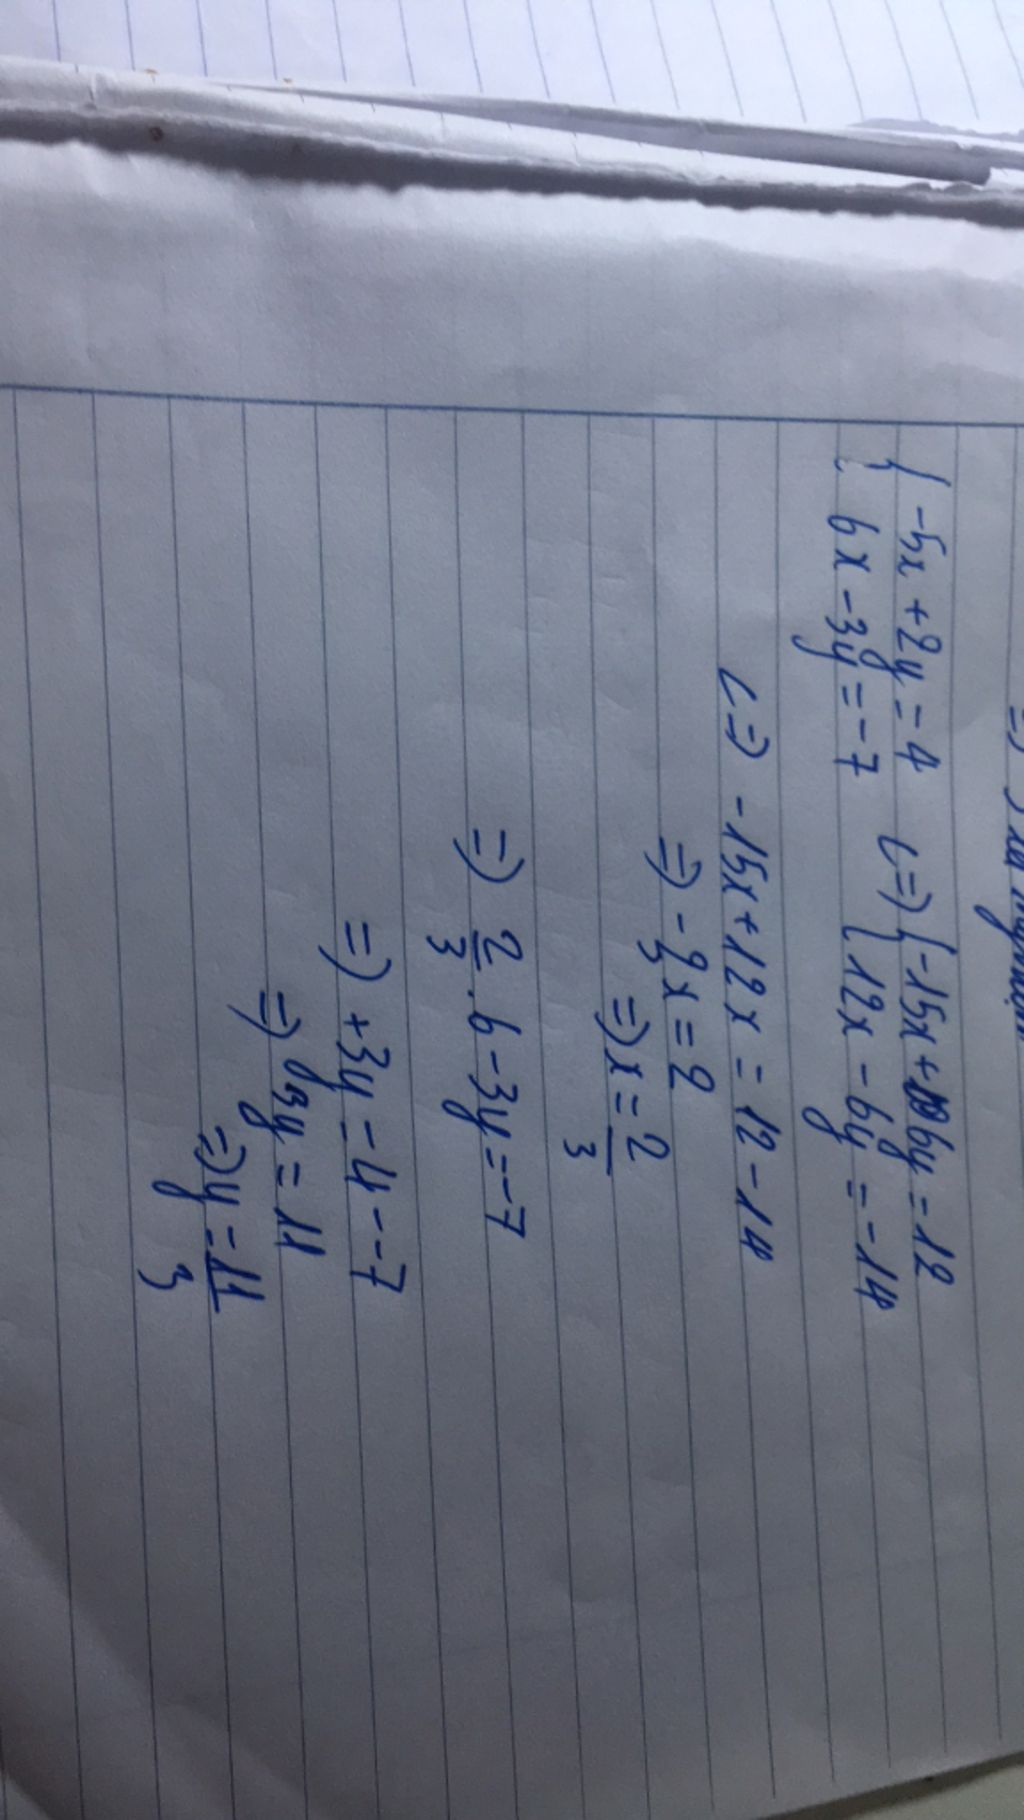 { -5x + 2y = 4
{ 6x - 3y = -7 <=> { -15x + 6y = 12
{ 12x - 6y = -14
<=> -15x + 12x = 12 - 14
=> -3x = 2
=> x = 2/3
=> 2/3 . 6 - 3y = -7
=> +3y = 4 - -7
=> 3y = 11
=> y = 11/3